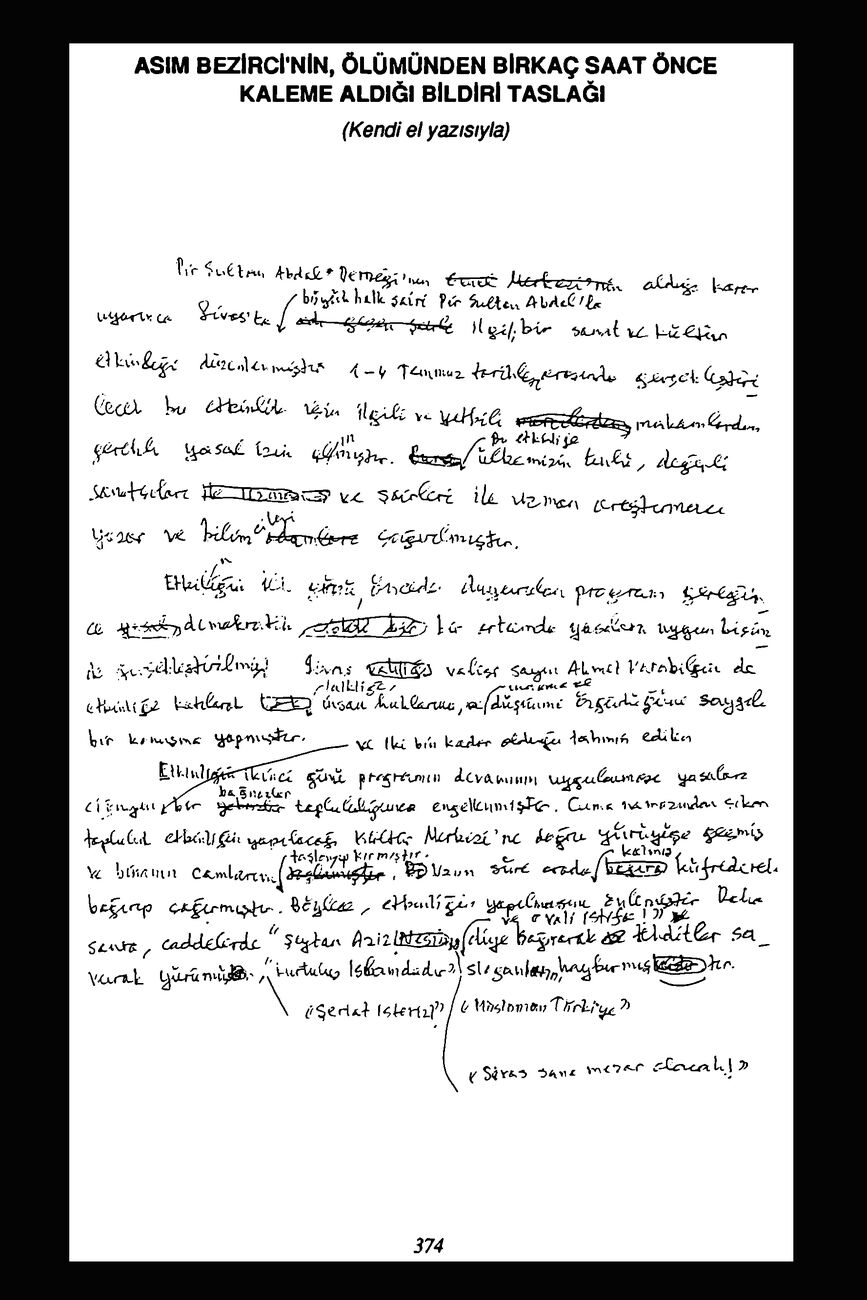 ASIM BEZİRCİ'NİN, ÖLÜMÜNDEN BİRKAÇ SAAT ÖNCE
KALEME ALDIĞI BİLDİRİ TASLAĞI
(Kendi el yazısıyla)
Pir Sultan Abdal Derneği'nin aldığı karar
büyük halk şairi Pir Sultan Abdal'la
uyarınca Sivas'ta ilgili bir sanat ve kültür
etkinliği düzenlenmiştir 1-4 Temmuz tarihleri arasında gerçekleştiri
lecek bu etkinlik için ilgili ve yetkili makamlardan
bu etkinliğe
gerekli yasal izin alınmıştır. ülkemizin ünlü, değerli
sanatçıları ve şairleri ile uzman araştırmacı
yazar ve bilim çağırılmıştır.
Etkinliğin ilk günü, önceden duyurulan program gereğin_
ce demokratik bir ortamda yasalara uygun biçim_
de gerçekleştirilmiş Sivas valisi sayın Ahmet Karabilgin de
laikliğe,
etkinliğe katılarak insan haklarına, düşünme özgürlüğüne saygılı
bir konuşma yapmıştır. ve iki bin kadar olduğu tahmin edilen
Etkinliğin ikinci günü programın devamının uygulanması yasaları
bağnazlar
çiğneyen bir topluluğunca engellenmiştir. Cuma namazından çıkan
topluluk etkinliğin yapılacağı Kültür Merkezi'ne doğru yürüyüşe geçmiş
taşlayıp kırmıştır. kalmış
ve binanın camlarını Uzun süre orada küfrederek
bağırıp çağırmıştır. Böylece, etkinliğin yapılmasını önlemiştir Daha
ve "Vali istifa!"
sonra, caddelerde "Şeytan Aziz" diye bağırarak tehditler sa_
vurak yürümüş, "Kurtuluş İslamdadır" sloganlarını haykırmıştır.
"Şeriat isteriz!" "Müslüman Türkiye"
"Sivas sana mezar olacak!"
374